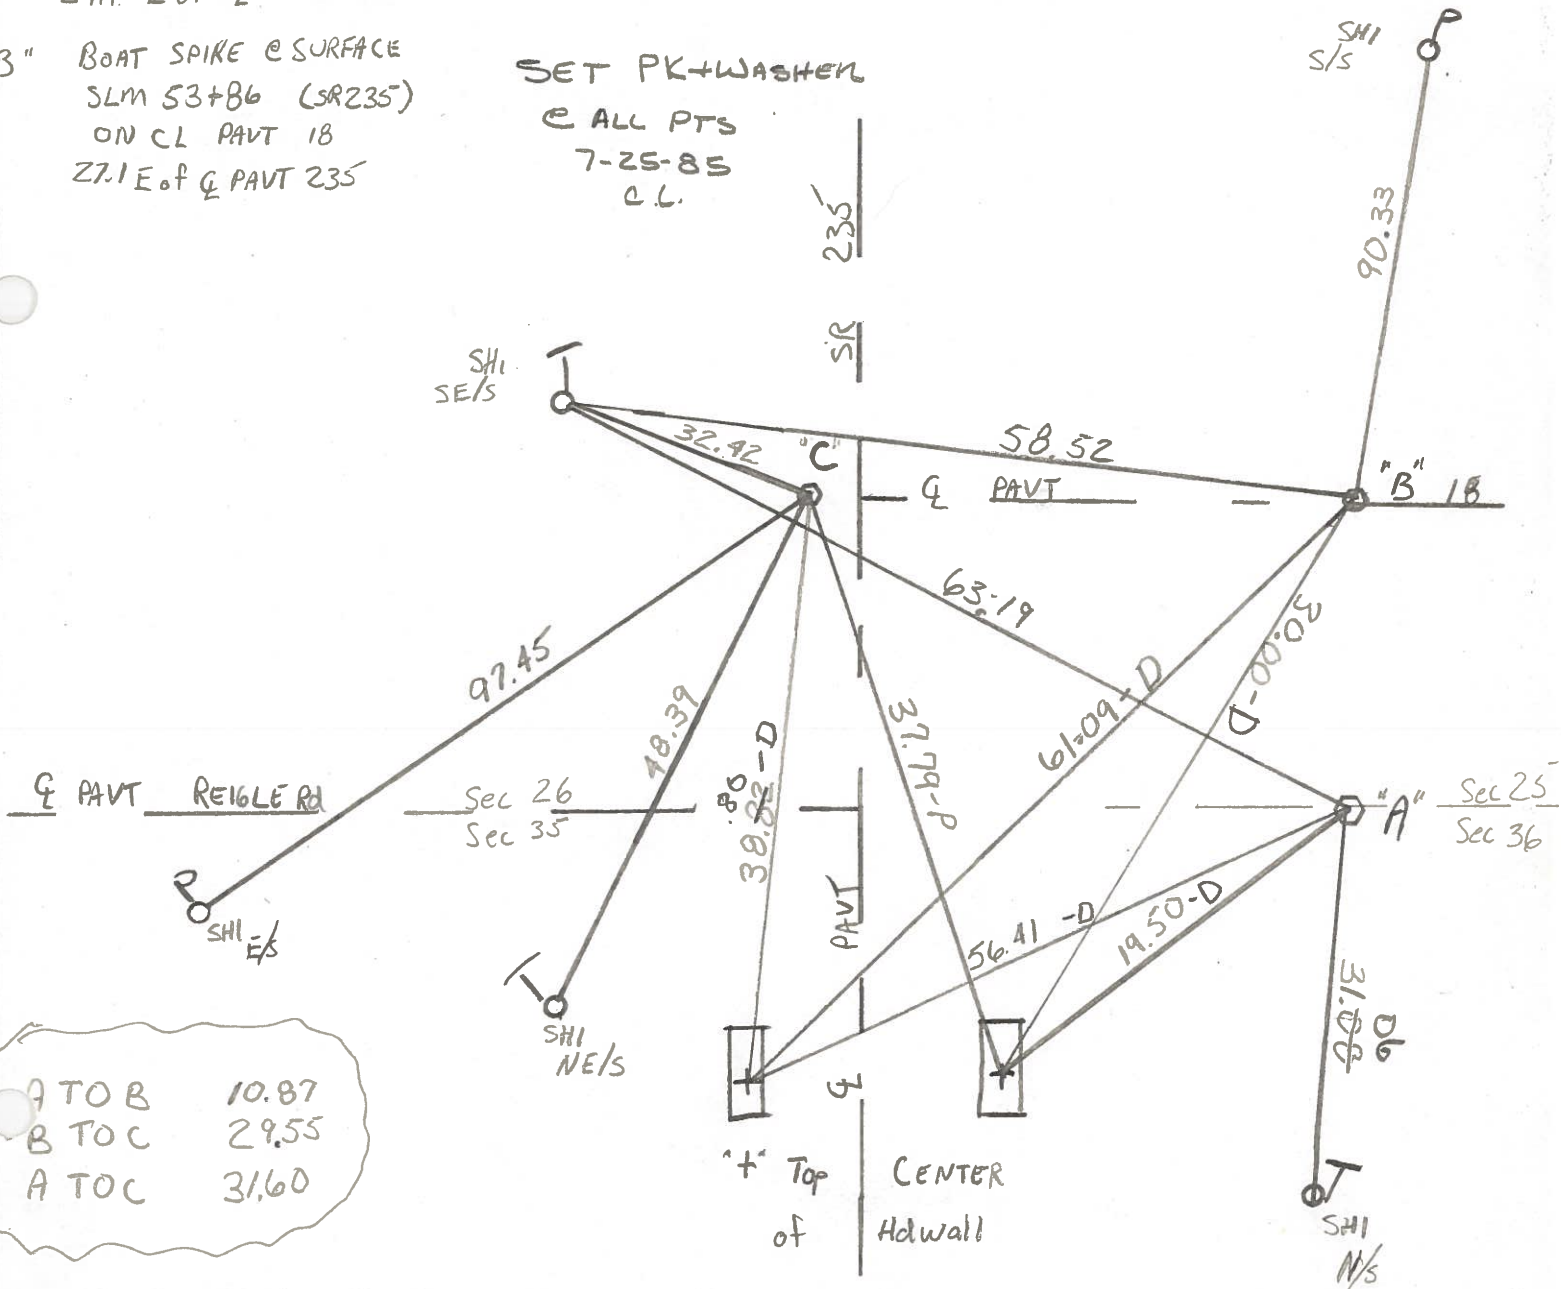 3" BOAT SPIKE @ SURFACE
SLM 53+86 (SR235)
ON CL PAVT 18
27.1 E of ℄ PAVT 235
SET PK+WASHER
@ ALL PTS
7-25-85
C.L.
SR 235
SH1
S/S
90.33
SH1
SE/S
32.42
"C"
58.52
℄ PAVT
"B" 18
63.19
97.45
48.39
38.82 .86 -D
37.79-P
61.09-D
30.00-D
℄ PAVT REIGLE Rd
Sec 26
Sec 35
"A"
Sec 25
Sec 36
SH1
E/S
PAVT
56.41 -D
19.50-D
31.
90
SH1
NE/S
℄
A TO B 10.87
B TO C 29.55
A TO C 31.60
"+" Top CENTER
of Hdwall
SH1
N/S